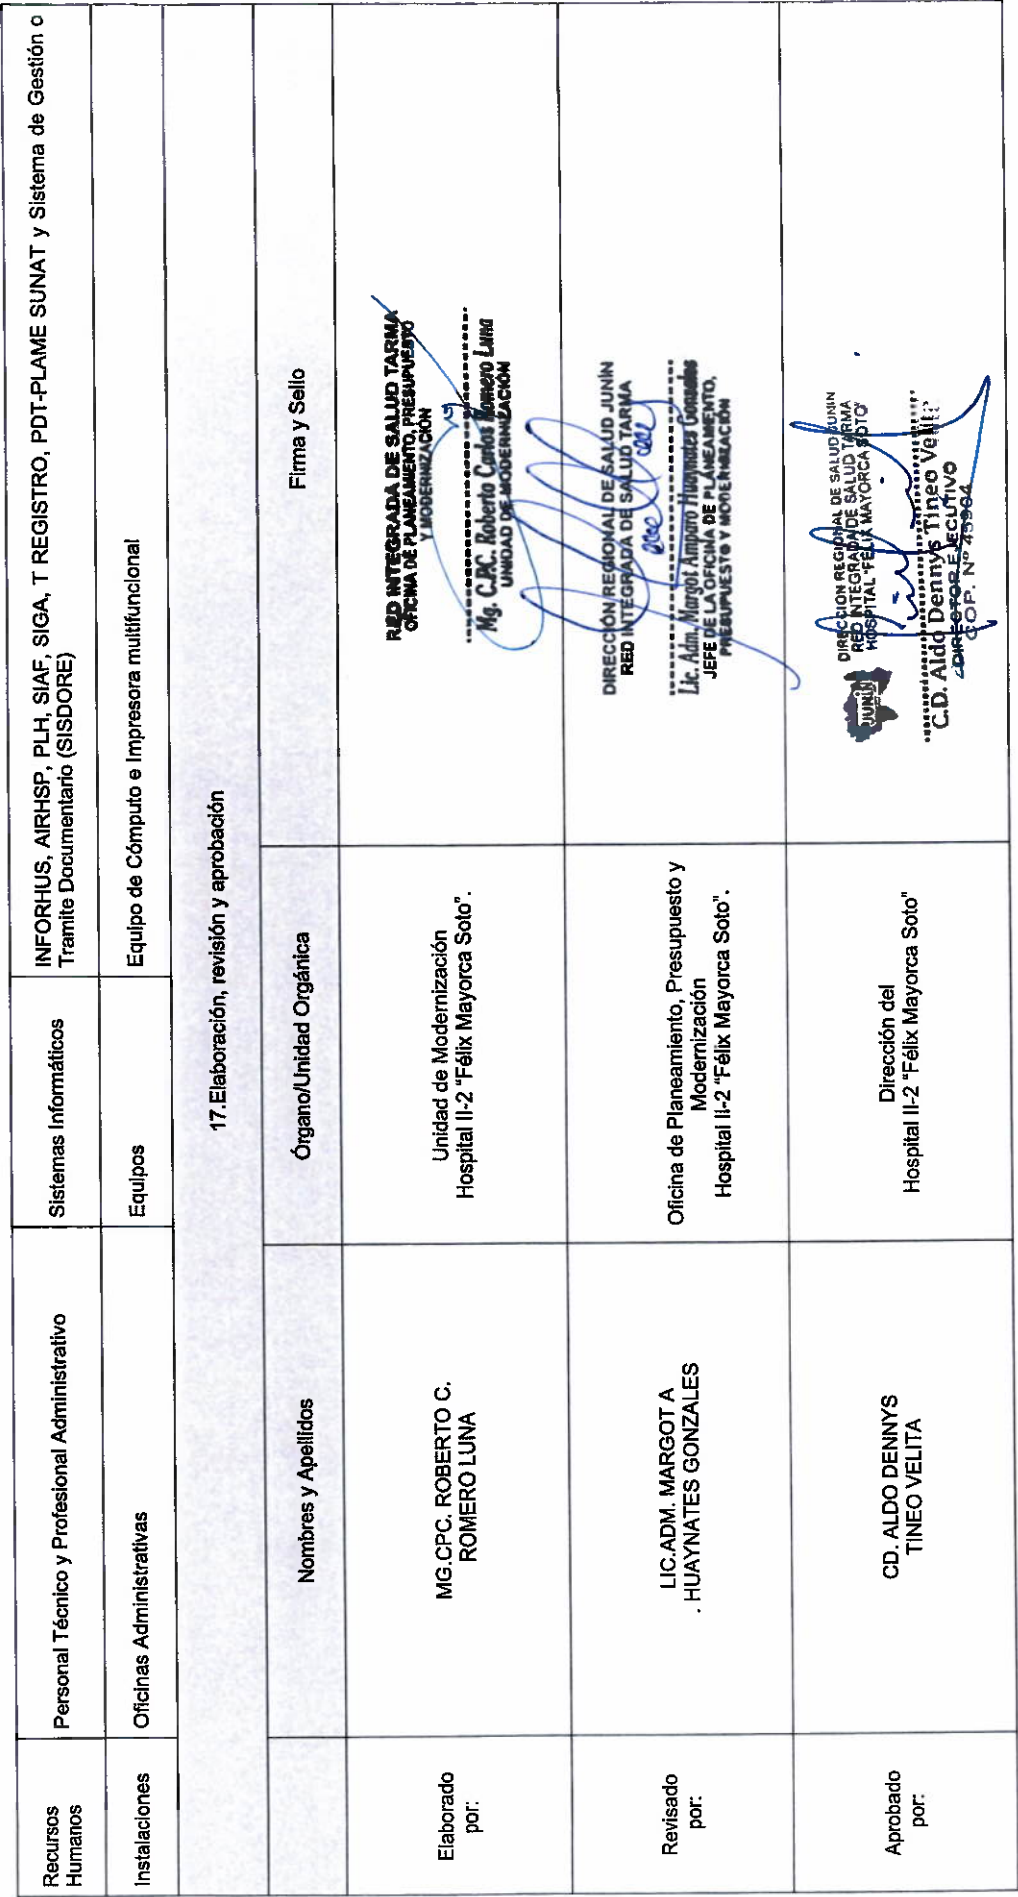 Recursos
Humanos
Personal Técnico y Profesional Administrativo
Sistemas Informáticos
INFORHUS, AIRHSP, PLH, SIAF, SIGA, T REGISTRO, PDT-PLAME SUNAT y Sistema de Gestión o
Tramite Documentario (SISDORE)
Instalaciones
Oficinas Administrativas
Equipos
Equipo de Cómputo e Impresora multifuncional
17.Elaboración, revisión y aprobación
Nombres y Apellidos
Órgano/Unidad Orgánica
Firma y Sello
Elaborado
por:
MG.CPC. ROBERTO C.
ROMERO LUNA
Unidad de Modernización
Hospital II-2 "Félix Mayorca Soto".
RED INTEGRADA DE SALUD TARMA
OFICINA DE PLANEAMIENTO, PRESUPUESTO
Y MODERNIZACIÓN
Mg. C.P.C. Roberto Carlos Romero Luna
UNIDAD DE MODERNIZACIÓN
Revisado
por:
LIC.ADM. MARGOT A
. HUAYNATES GONZALES
Oficina de Planeamiento, Presupuesto y
Modernización
Hospital II-2 "Félix Mayorca Soto".
DIRECCIÓN REGIONAL DE SALUD JUNÍN
RED INTEGRADA DE SALUD TARMA
Lic. Adm. Margot Amparo Huaynates Gonzales
JEFE DE LA OFICINA DE PLANEAMENTO,
PRESUPUESTO Y MODERNIZACIÓN
Aprobado
por:
CD. ALDO DENNYS
TINEO VELITA
Dirección del
Hospital II-2 "Félix Mayorca Soto"
JUNÍN
DIRECCION REGIONAL DE SALUD JUNIN
RED INTEGRADA DE SALUD TARMA
HOSPITAL "FELIX MAYORCA SOTO"
C.D. Aldo Dennys Tineo Velita
DIRECTOR EJECUTIVO
COP. N° 45904